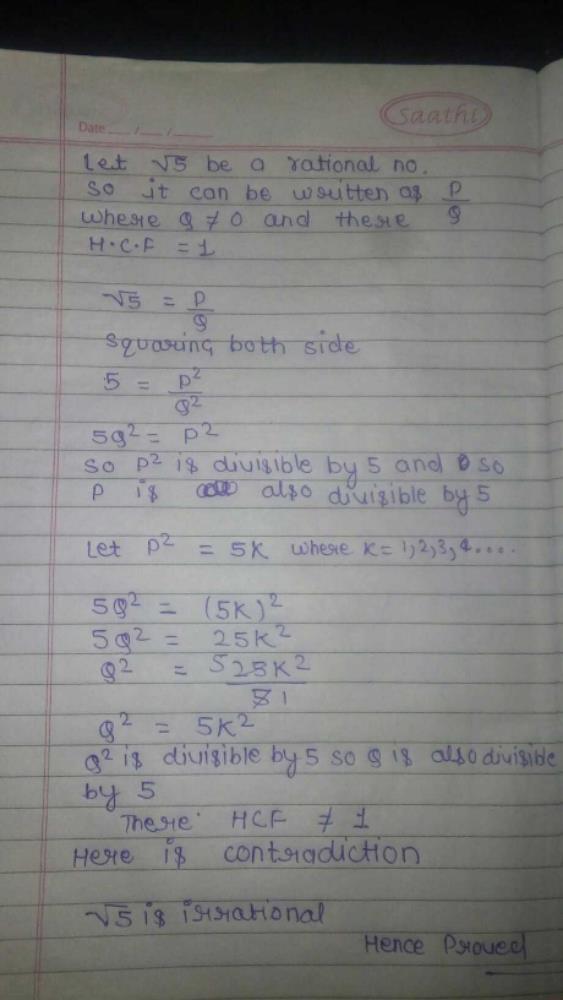 Saathi
Date ___ /___ /_____
Let √5 be a rational no.
So it can be written as P/Q
where Q ≠ 0 and there
H.C.F = 1
√5 = P/Q
Squaring both side
5 = P²/Q²
5Q² = P²
So P² is divisible by 5 and so
P is also divisible by 5
Let P² = 5K where K = 1,2,3,4....
5Q² = (5K)²
5Q² = 25K²
Q² = 5 25K²/5 1
Q² = 5K²
Q² is divisible by 5 so Q is also divisible
by 5
There HCF ≠ 1
Here is contradiction
√5 is irrational
Hence Proved